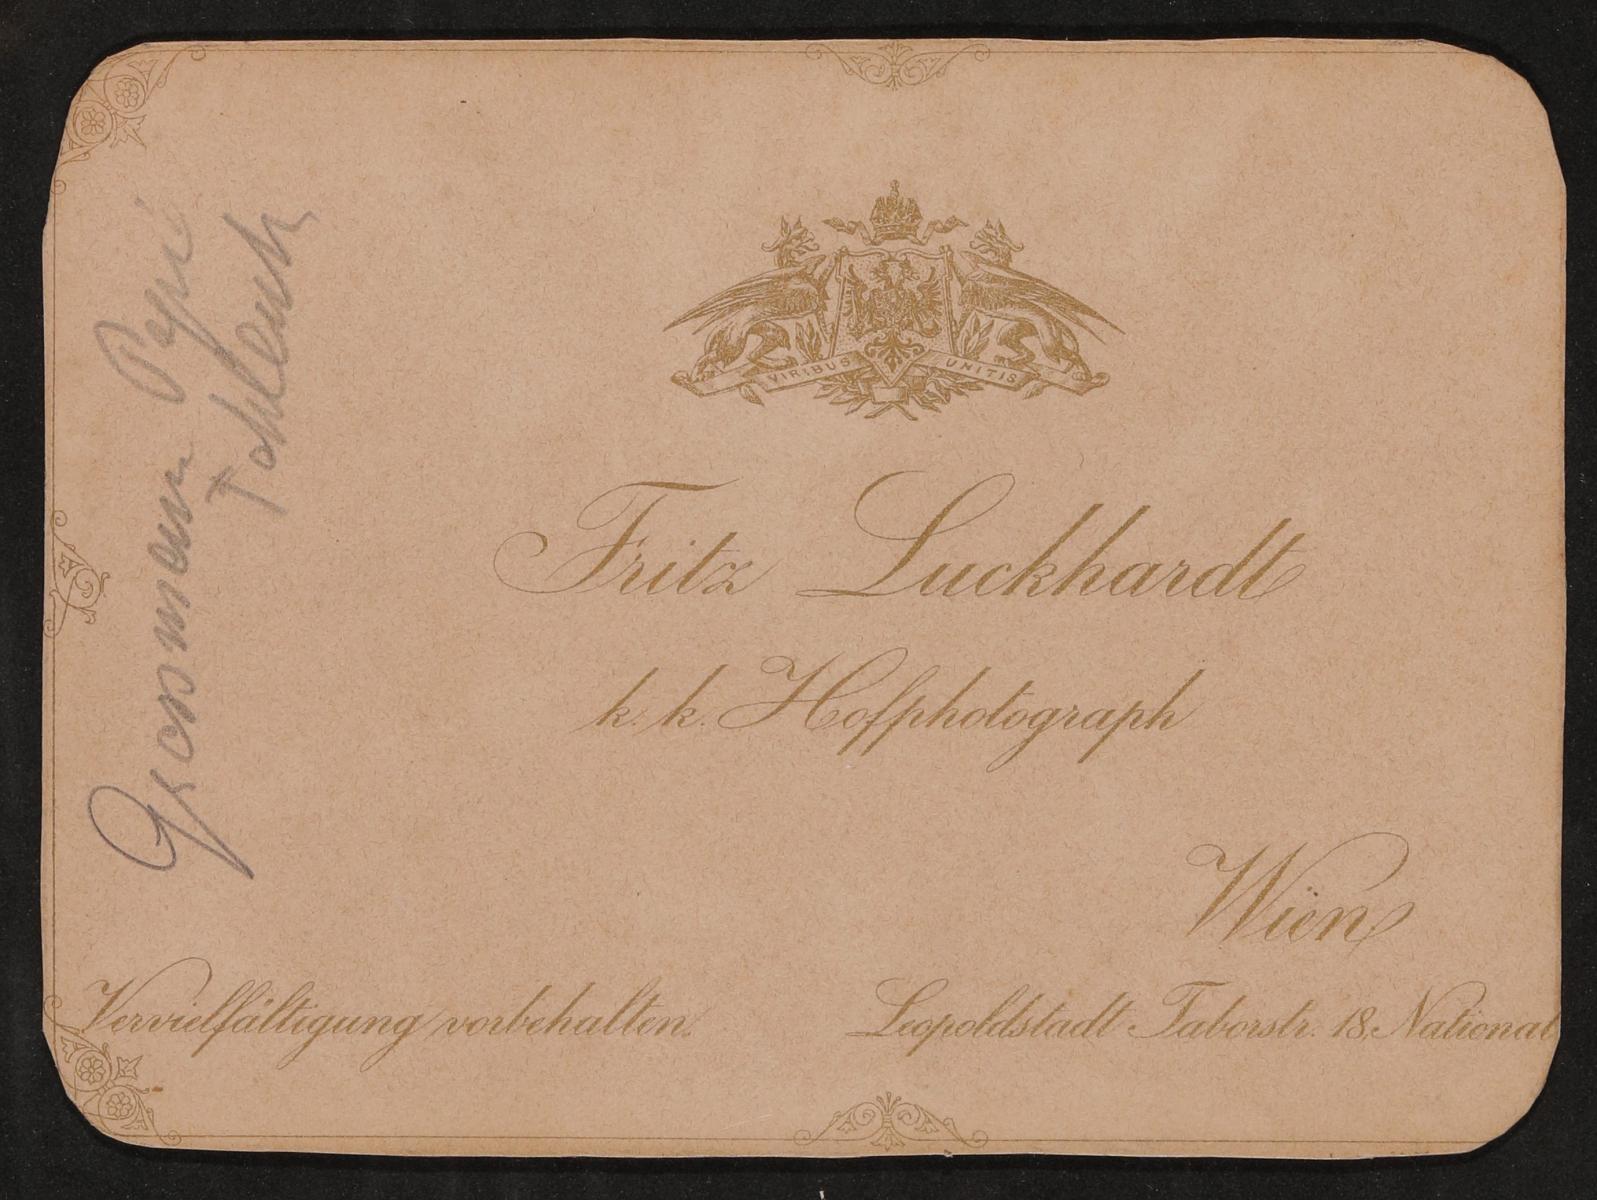 VIRIBUS UNITIS
Fritz Luckhardt
k. k. Hofphotograph
Wien
Vervielfältigung vorbehalten.
Leopoldstadt Taborstr. 18, National
Grossmann Pepi